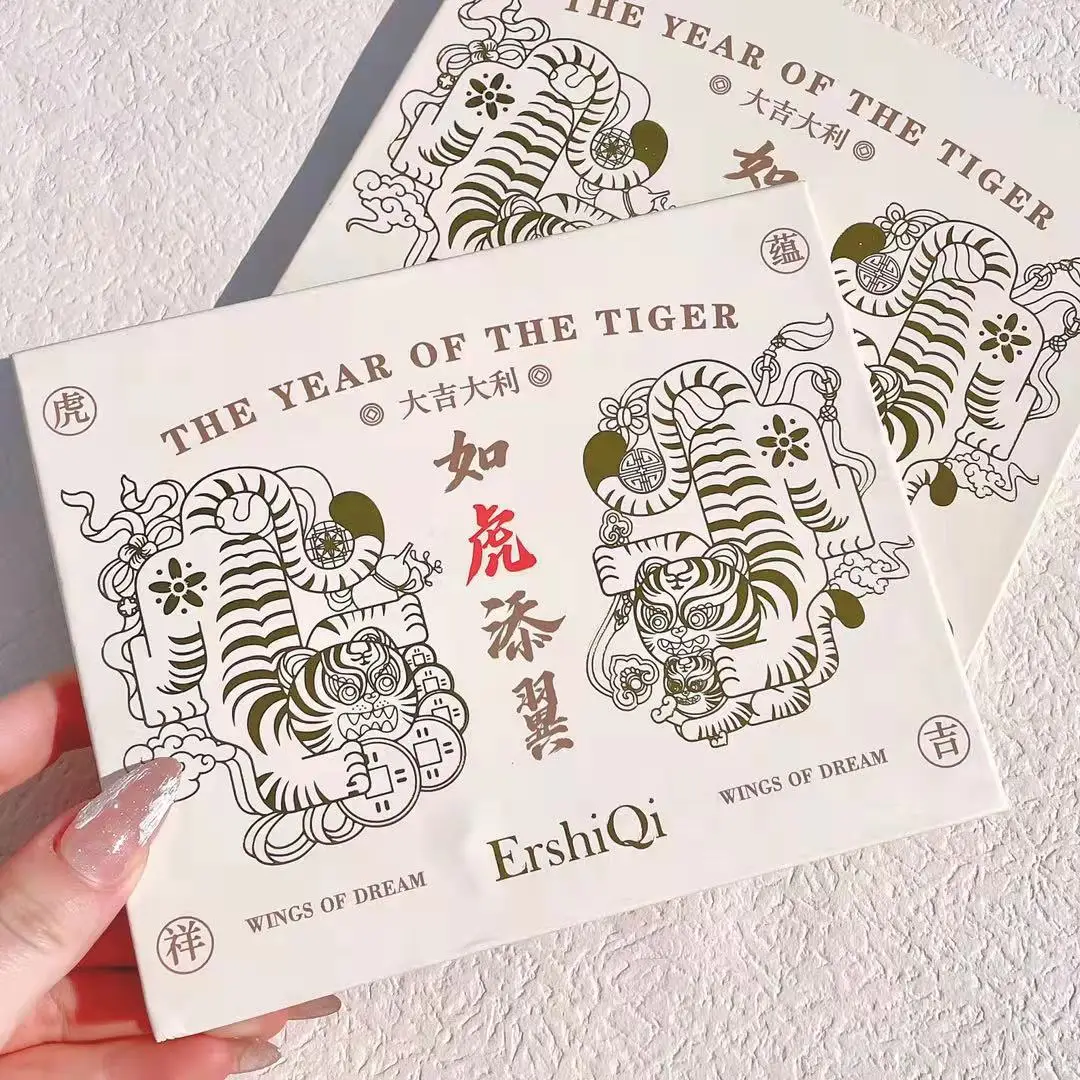 THE YEAR OF THE TIGER
大吉大利
如
THE YEAR OF THE TIGER
大吉大利
虎
蕴
如
虎
添
翼
WINGS OF DREAM
吉
ErshiQi
WINGS OF DREAM
祥